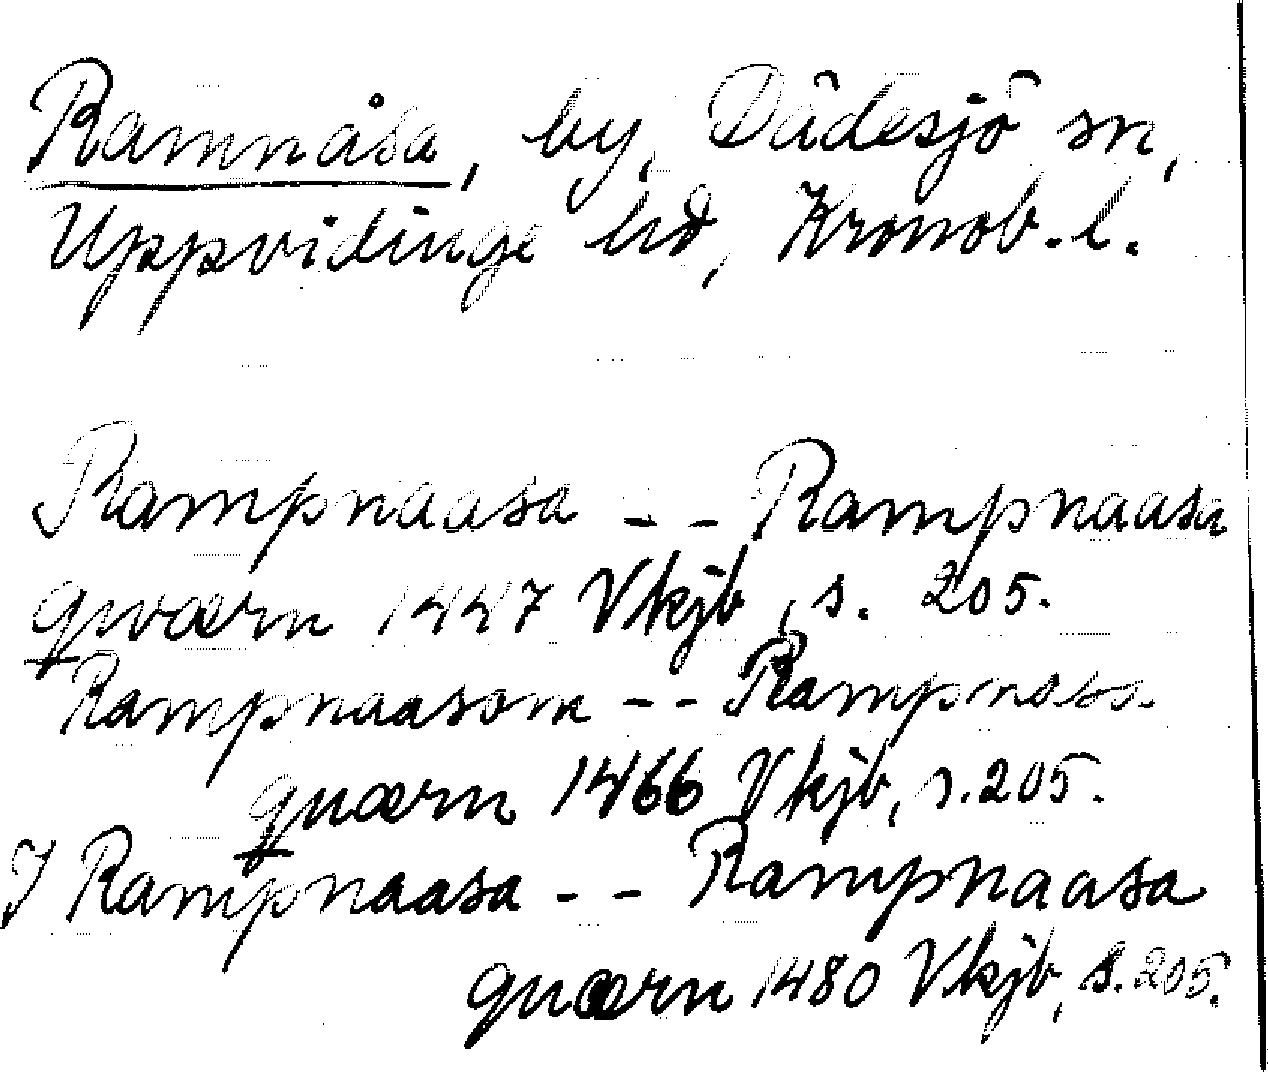 Ramnåsa, by, Dädesjö sn,
Uppvidinge hd, Kronob. l.
Rampnaasa - - Rampnaasa
qwærn 1447 Vkjb, s. 205.
Rampnaasom - - Rampnasa
quærn 1466 Vkjb, s. 205.
I Rampnaasa - - Rampnaasa
quærn 1480 Vkjb, s. 205.